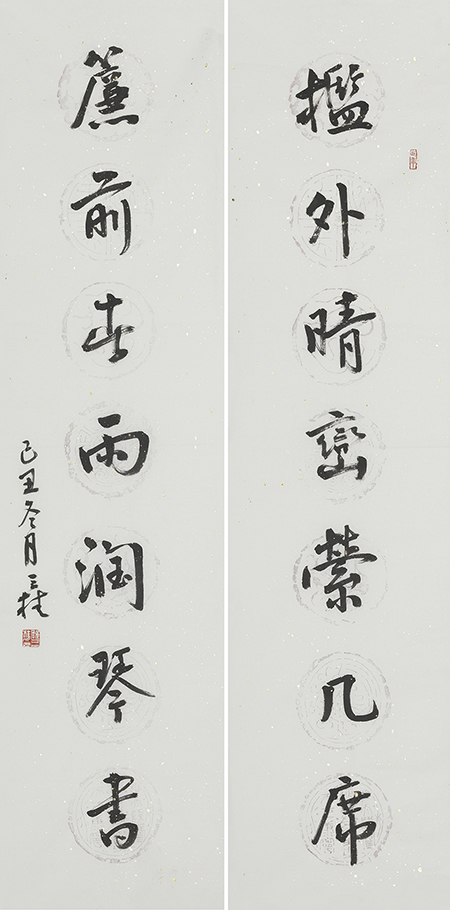 檻外晴峦縈几席
簾前春雨润琴書
己丑冬月